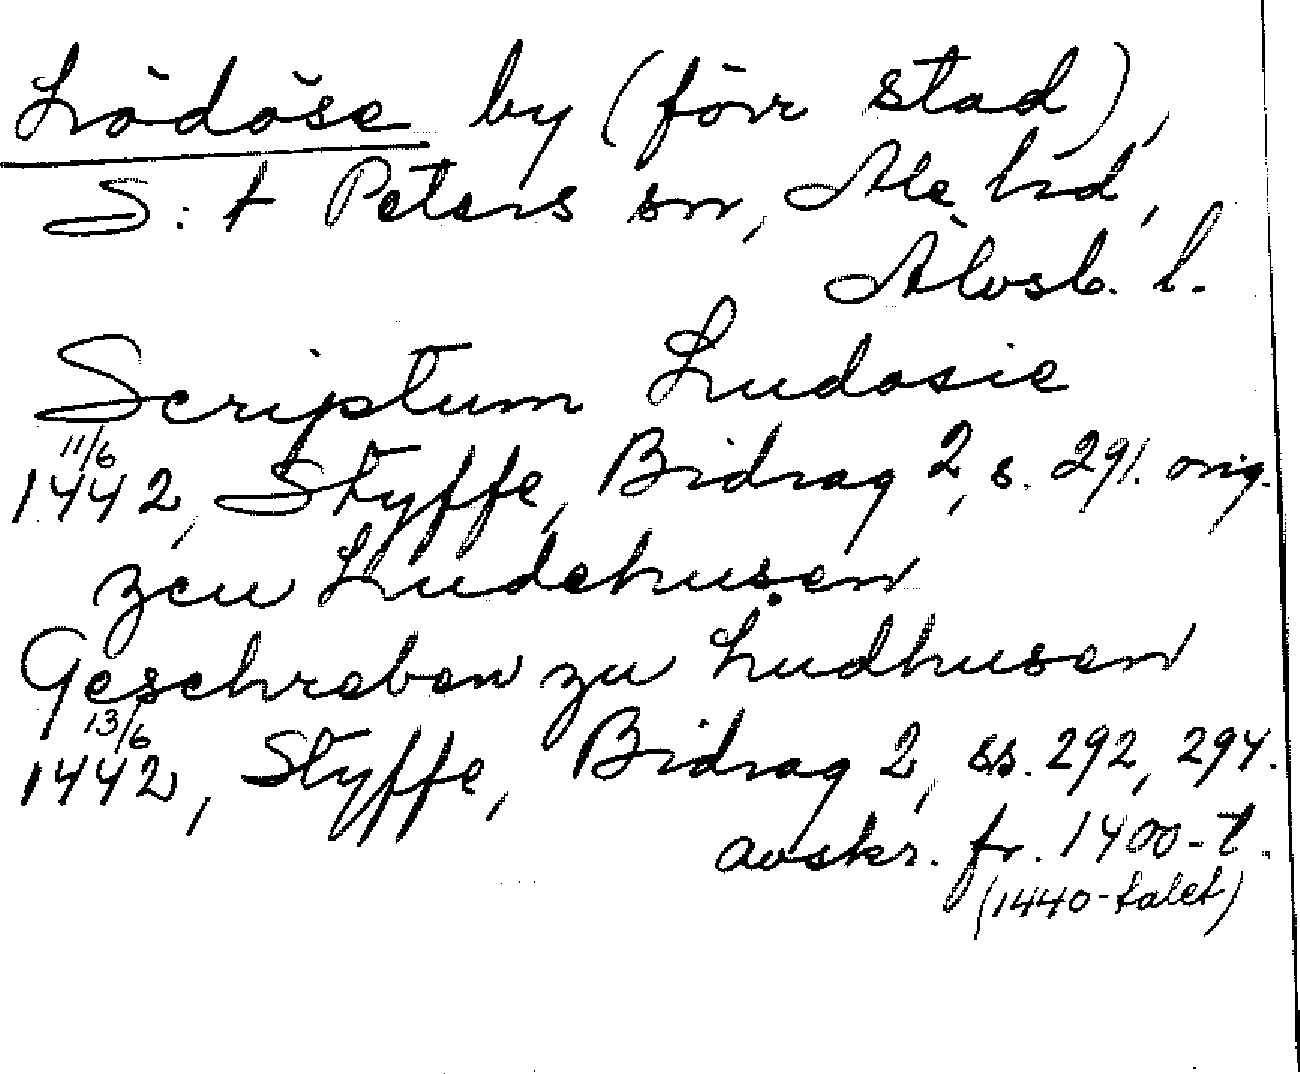 Lödöse by (förr stad),
S:t Peters sn, Ale hd,
Älvsb. l.
Scriptum Ludosie
11/6
1442, Styffe, Bidrag 2, s. 291. orig.
zcu Ludehusen
Geschreben zu Ludhusen
13/6
1442, Styffe, Bidrag 2, ss. 292, 294.
avskr. fr. 1400-t.
(1440-talet)